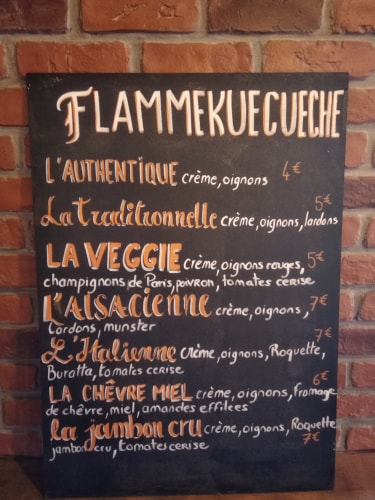 FLAMMEKUECUECHE
L'AUTHENTIQUE crème, oignons 4€
La traditionnelle crème, oignons, lardons 5€
LA VEGGIE crème, oignons rouges, 5€
champignons de Paris, poivron, tomates cerise
L'ALSACIENNE crème, oignons, 7€
Lardons, munster
L'Italienne crème, oignons, Roquette, 7€
Buratta, tomates cerise
LA CHÊVRE MIEL crème, oignons, fromage 6€
de chêvre, miel, amandes effilées
la jambon cru crème, oignons, Roquette
jambon cru, tomates cerise 7€